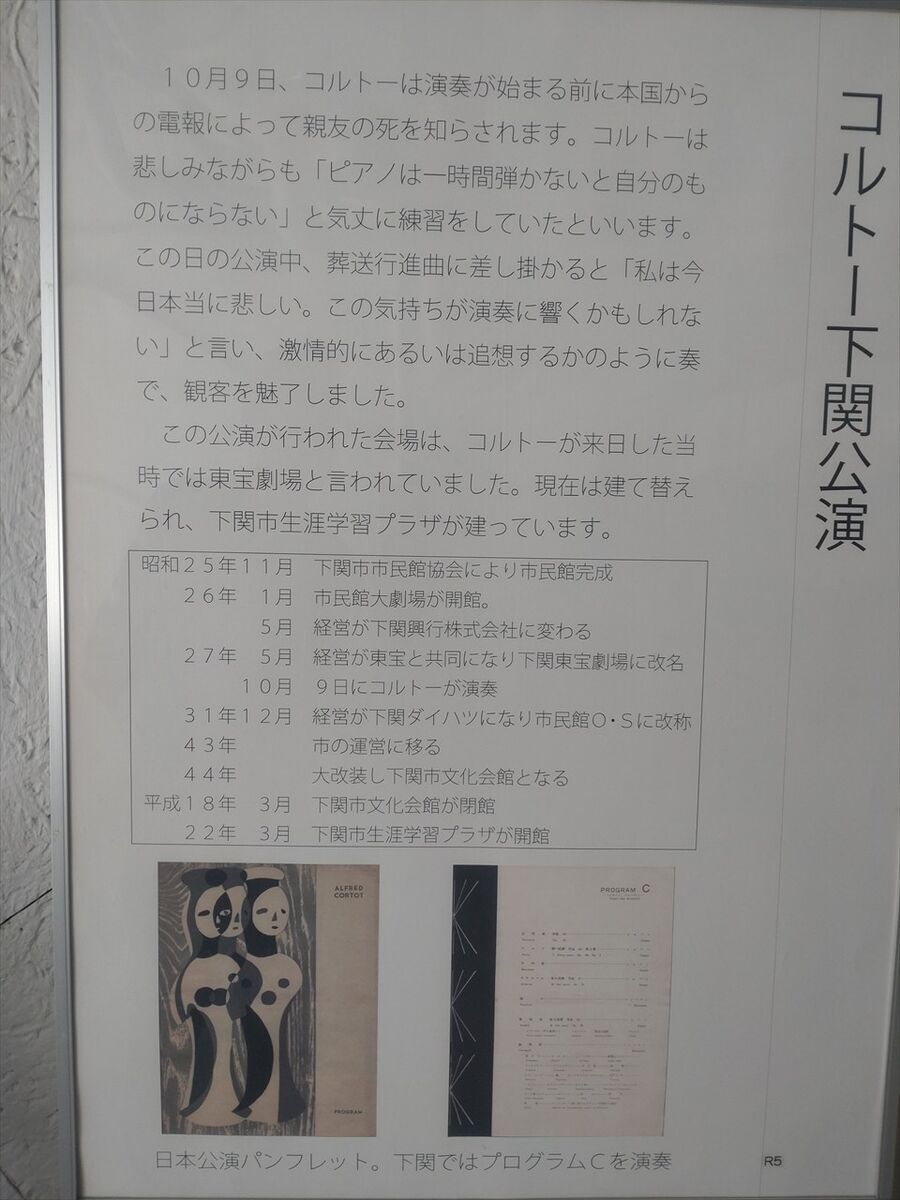 コルトー下関公演
　１０月９日、コルトーは演奏が始まる前に本国から
の電報によって親友の死を知らされます。コルトーは
悲しみながらも「ピアノは一時間弾かないと自分のも
のにならない」と気丈に練習をしていたといいます。
この日の公演中、葬送行進曲に差し掛かると「私は今
日本当に悲しい。この気持ちが演奏に響くかもしれな
い」と言い、激情的にあるいは追想するかのように奏
で、観客を魅了しました。
　この公演が行われた会場は、コルトーが来日した当
時では東宝劇場と言われていました。現在は建て替え
られ、下関市生涯学習プラザが建っています。
昭和２５年１１月　下関市市民館協会により市民館完成
２６年　１月　市民館大劇場が開館。
５月　経営が下関興行株式会社に変わる
２７年　５月　経営が東宝と共同になり下関東宝劇場に改名
１０月　９日にコルトーが演奏
３１年１２月　経営が下関ダイハツになり市民館Ｏ・Ｓに改称
４３年　市の運営に移る
４４年　大改装し下関市文化会館となる
平成１８年　３月　下関市文化会館が閉館
２２年　３月　下関市生涯学習プラザが開館
ALFRED
CORTOT
PROGRAM
PROGRAM C
日本公演パンフレット。下関ではプログラムＣを演奏
R5